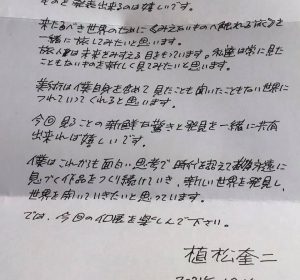 ものと発表出来るのは嬉しいです。
来たるべき世界のために「みえないものへ触れる旅」を
一緒に旅してみたいと思います。
旅人は未来をみすえる目をもっています。私達は常に見た
こともないものを新しく見てみたいと思います。
美術は僕自身を含めて見たことも聞いたこともない世界に
つれていってくれると思います。
今回見ることの新鮮な驚きと発見を一緒に共有
出来れば嬉しいです。
僕はこれからも面白い思考で時代を超えて永遠に
息づく作品をつくり続けていき、新しい世界を発見し、
世界を開いていきたいと思っています。
では、今回の個展を楽しんで下さい。
植松奎二